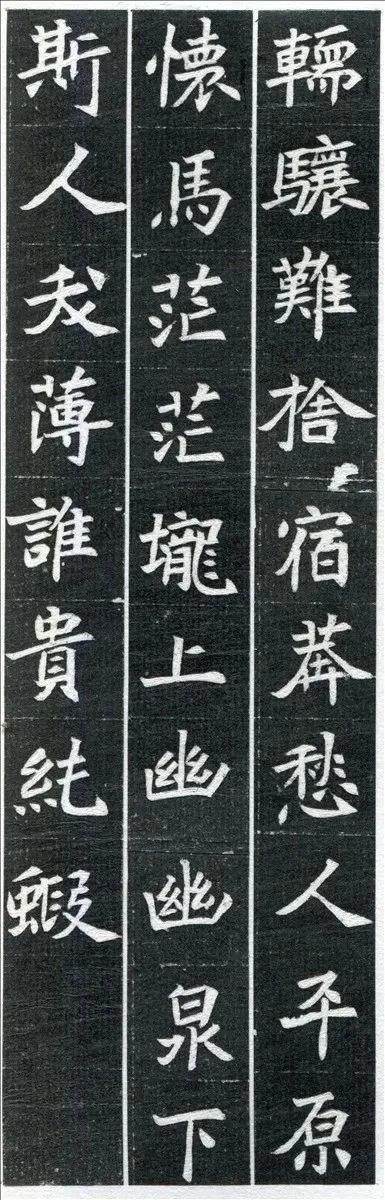 轜驤難捨宿莽愁人平原
懷馬茫茫壠上幽幽泉下
斯人我薄誰貴純嘏